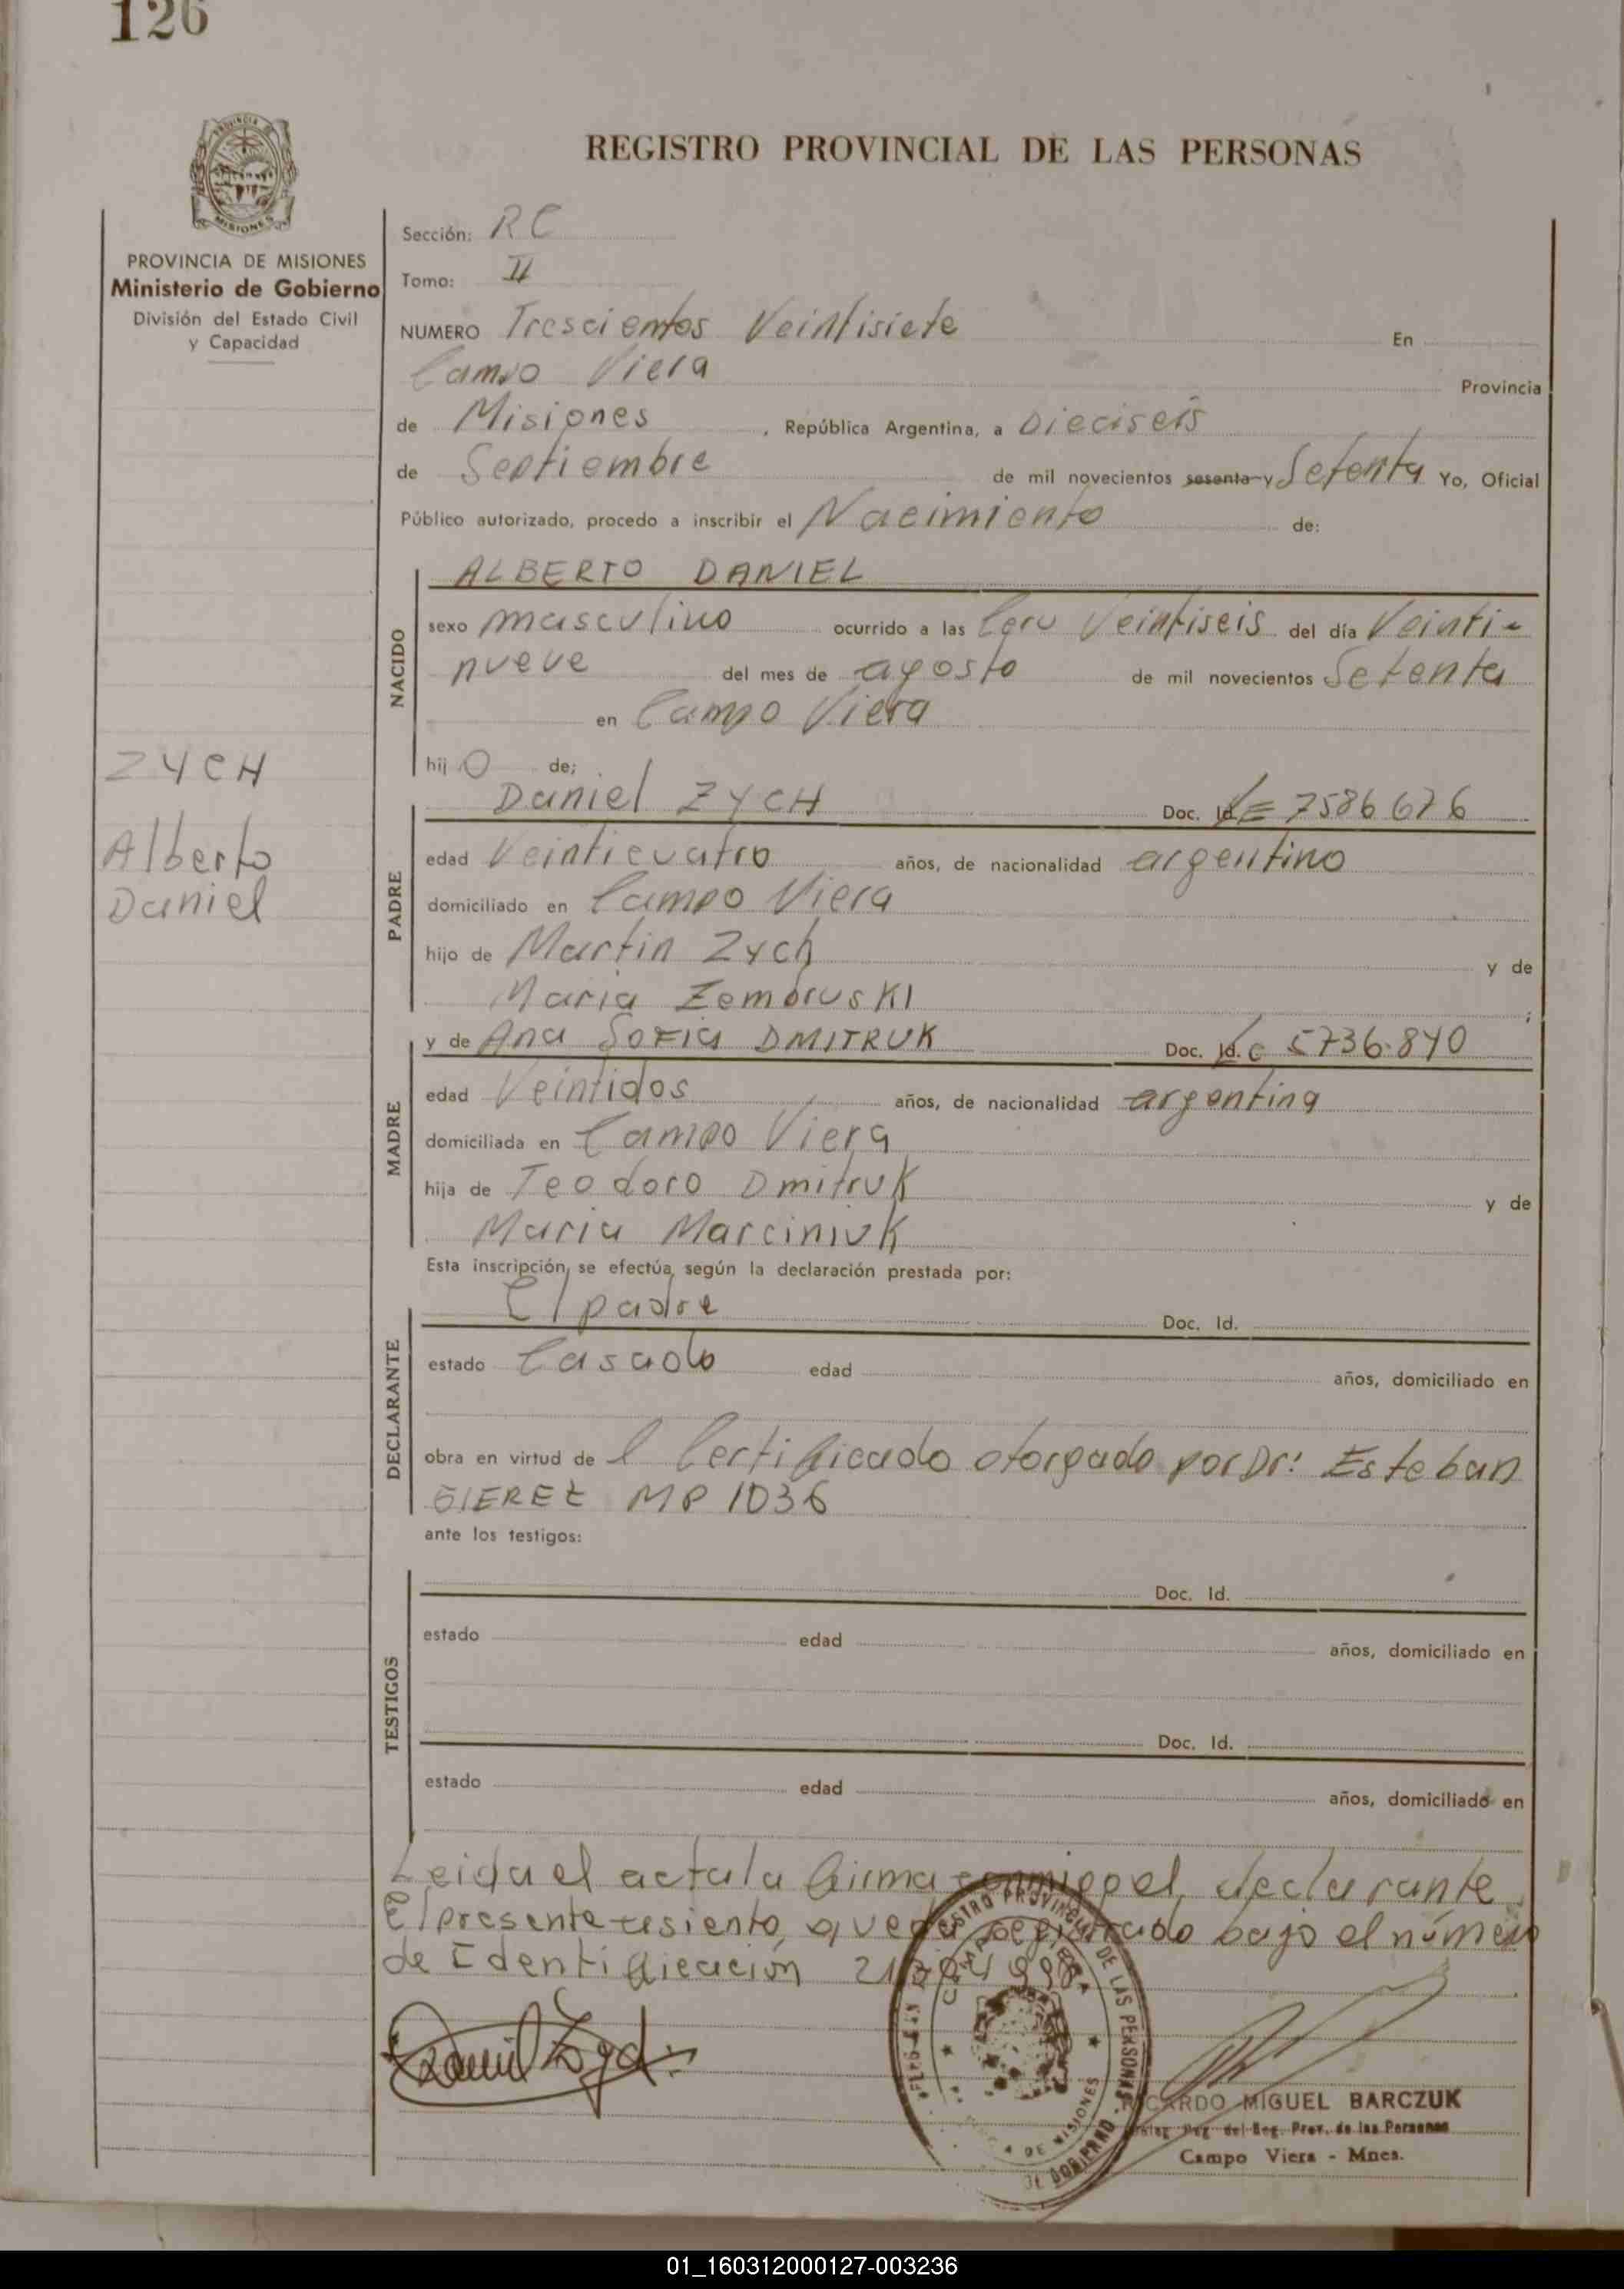 126
REGISTRO PROVINCIAL DE LAS PERSONAS
PROVINCIA DE MISIONES
Ministerio de Gobierno
División del Estado Civil
y Capacidad
Sección: RC
Tomo: II
NUMERO Trescientos Veintisiete En
Campo Viera Provincia
de Misiones, República Argentina, a Dieciseis
de Septiembre de mil novecientos sesenta y Setenta Yo, Oficial
Público autorizado, procedo a inscribir el Nacimiento de:
NACIDO
ALBERTO DANIEL
sexo masculino ocurrido a las Cero Veintiseis del día Veinti-
nueve del mes de agosto de mil novecientos Setenta
en Campo Viera
hijo de;
ZYCH
Alberto
Daniel
PADRE
Daniel ZYCH Doc. Id. LE 7586676
edad Veinticuatro años, de nacionalidad argentino
domiciliado en Campo Viera
hijo de Martin Zych y de
Maria Zembruski;
MADRE
y de Ana Sofia DMITRUK Doc. Id. LC 5736.840
edad Veintidos años, de nacionalidad argentina
domiciliada en Campo Viera
hija de Teodoro Dmitruk y de
Maria Marciniuk
Esta inscripción, se efectúa, según la declaración prestada por:
DECLARANTE
El padre Doc. Id.
estado Casado edad años, domiciliado en
obra en virtud de l Certificado otorgado por Dr: Esteban
MP 1036
ante los testigos:
TESTIGOS
Doc. Id.
estado edad años, domiciliado en
Doc. Id.
estado edad años, domiciliado en
Leida el acta la firma conmigo el declarante
El presente asiento queda registrado bajo el número
de Identificación
Daniel Zych
REGISTRO PROVINCIAL DE LAS PERSONAS
CAMPO VIERA
DE MISIONES
RICARDO MIGUEL BARCZUK
Reg. del Reg. Prov. de las Personas
Campo Viera - Mnes.
01_160312000127-003236